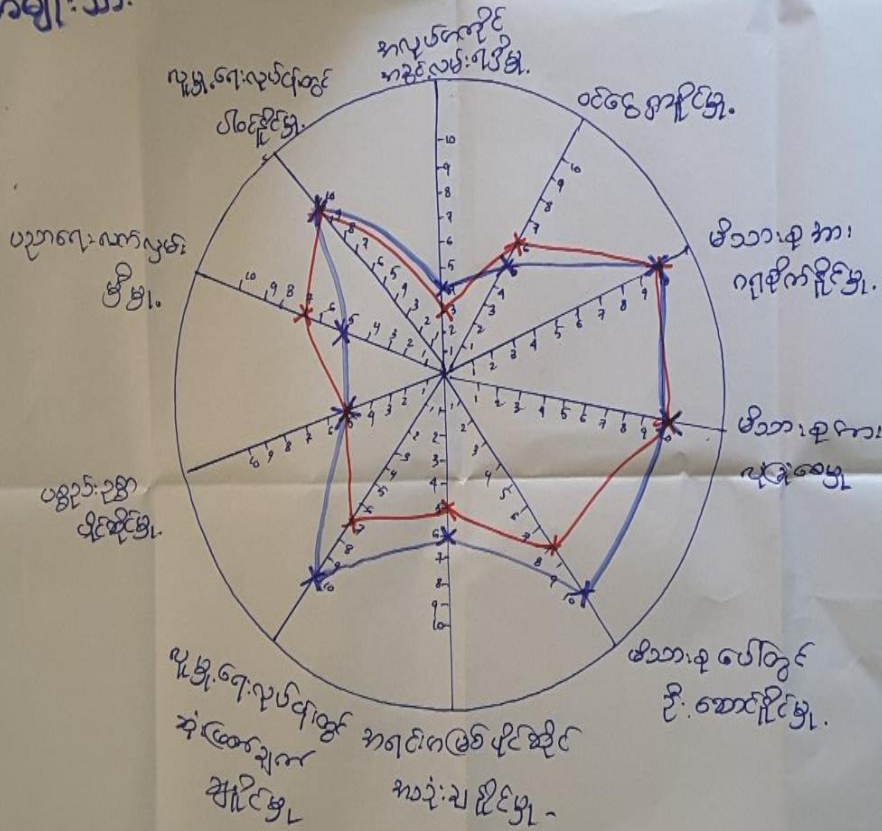 အမျိုးသား
အလုပ်အကိုင်
အခွင့်လမ်းရရှိမှု.
ဝင်ငွေရှာနိုင်မှု.
မိသားစုအား
ဂရုစိုက်နိုင်မှု.
မိသားစုအား
လုံခြုံစေမှု
မိသားစုပေါ်တွင်
ဦးဆောင်နိုင်မှု.
အရင်းအမြစ်ပိုင်ဆိုင်
အသုံးချနိုင်မှု-
လူမှု.ရေးလုပ်ငန်းတွင်
ဆုံးဖြတ်ချက်
ချနိုင်မှု
ပစ္စည်းဥစ္စာ
ပိုင်ဆိုင်မှု.
ပညာရေးလက်လှမ်း
မှီမှု.
လူမှု.ရေးလုပ်ငန်းတွင်
ပါဝင်နိုင်မှု.